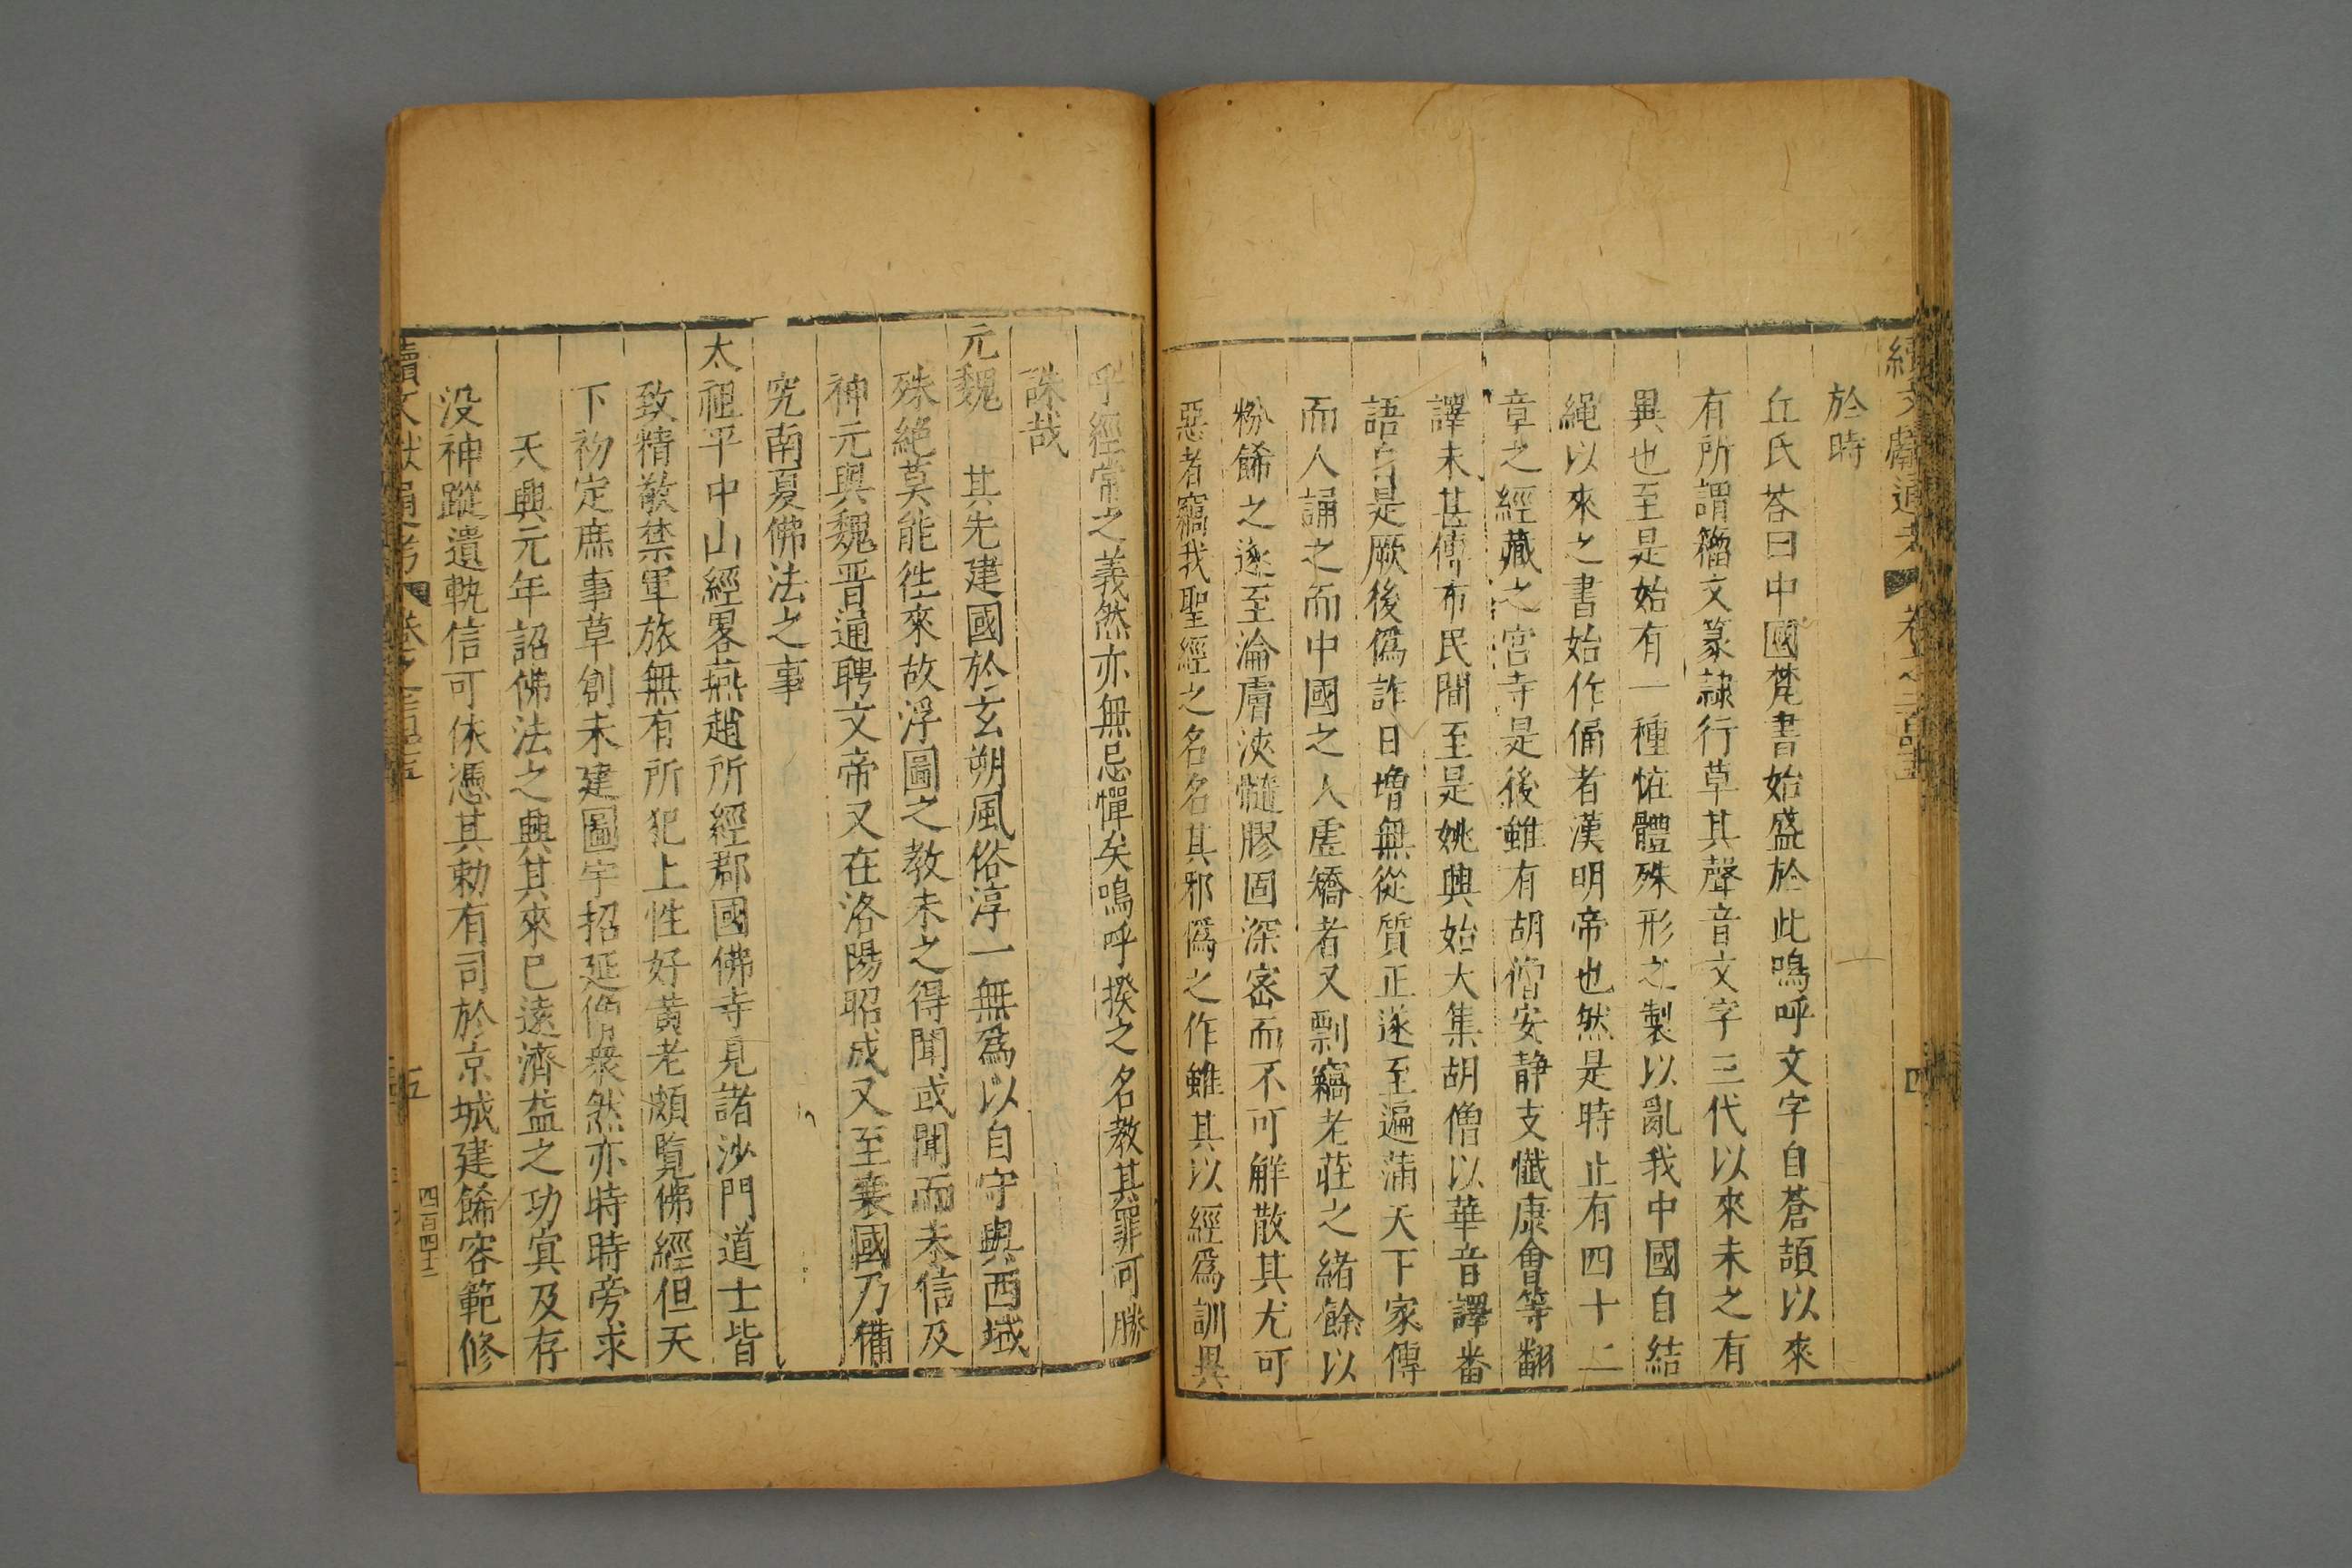 於時
丘氏荅曰中國梵書始盛於此嗚呼文字自蒼頡以來
有所謂籀文篆隷行草其聲音文字三代以來未之有
異也至是始有一種恠體殊形之製以亂我中國自結
繩以來之書始作俑者漢明帝也然是時止有四十二
章之經藏之宮寺是後雖有胡僧安静支懺康會等翻
譯未甚傳布民間至是姚興始大集胡僧以華音譯番
語自是厥後僞詐日增無從質正遂至遍蒲天下家傳
而人誦之而中國之人虗矯者又剽竊老莊之緒餘以
粉餙之遂至淪膚浹髓膠固深密而不可觧散其尤可
惡者竊我聖經之名名其邪僞之作雖其以經爲訓異
乎經常之義然亦無忌憚矣嗚呼揆之名教其罪可勝
誅哉
元魏 其先建國於玄朔風俗淳一無爲以自守與西域
殊絕莫能徃來故浮圖之教未之得聞或聞而未信及
神元與魏晋通聘文帝又在洛陽昭成又至襄國乃備
究南夏佛法之事
太祖平中山經畧燕趙所經郡國佛寺見諸沙門道士皆
致精敬禁軍旅無有所犯上性好黄老頗覽佛經但天
下初定庶事草創未建圖宇招延僧衆然亦時時旁求
天興元年詔佛法之興其來已遠濟益之功㝠及存
没神蹤遺軌信可依憑其勅有司於京城建餙容範修
四百四十二